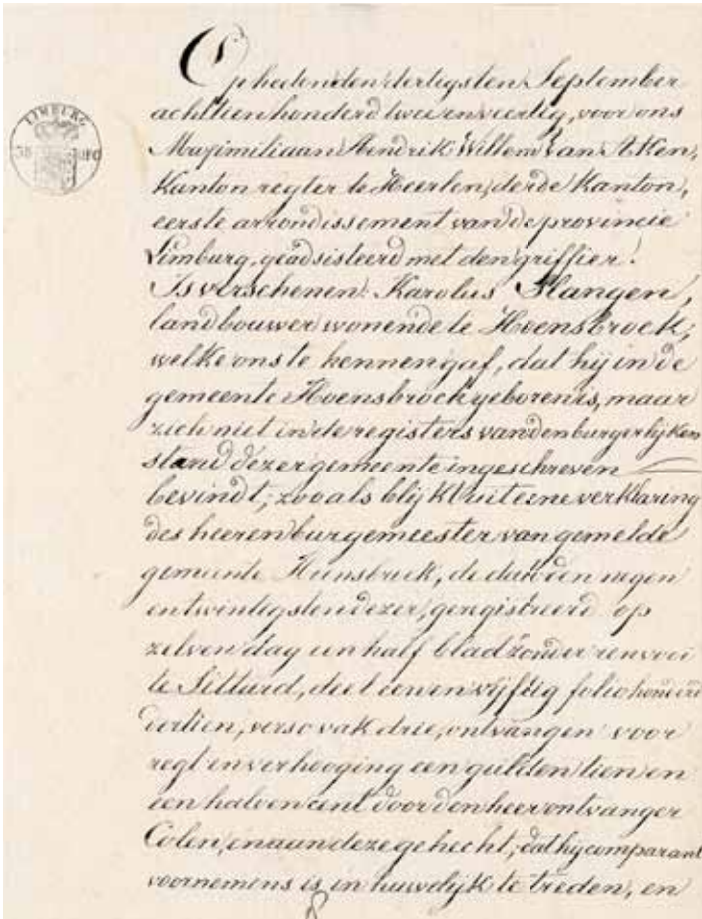 Op heden den dertigsten September
achttienhonderd twee en veertig, voor ons
Maximiliaan Hendrik Willem Van Aken,
Kantonregter te Heerlen, derde Kanton,
eerste arrondissement van de provincie
Limburg, geadsisteerd met den griffier!
Is verschenen: Karolus Slangen,
landbouwer wonende te Hoensbroek,
welke ons te kennen gaf, dat hij in de
gemeente Hoensbroek geboren is, maar
zich niet in de registers van den burgerlijken
stand dezer gemeente ingeschreven
bevindt; zooals blijkt uit eene verklaring
des heeren burgemeester van gemelde
gemeente Hoensbroek, de dato den negen
en twintigsten dezer, geregistreerd op
zelven dag een half blad zonder renvooi
te Sittard, deel een en vijftig folio honderd
dertien, verso vak drie, ontvangen voor
regt en verhooging een gulden tien en
een halven cent door den heer ontvanger
Colen, en aan deze gehecht; dat hij comparant
voornemens is in huwelijk te treden, en
LIMBURG